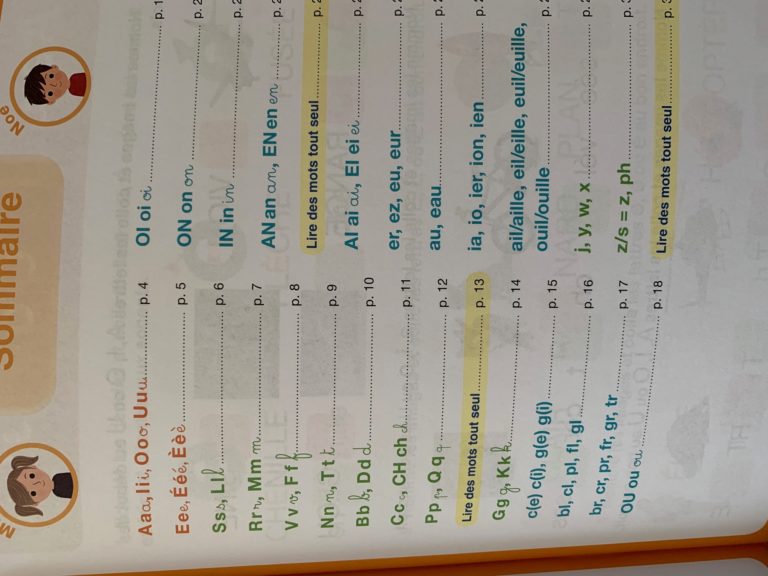 Sommaire
Noé
Aa a, I i i, O o o, U u u p. 4
E e e, É é é, È è è p. 5
S s s, L l l p. 6
R r r, M m m p. 7
V v v, F f f p. 8
N n n, T t t p. 9
B b b, D d d p. 10
C c c, CH ch ch p. 11
P p p, Q q q p. 12
Lire des mots tout seul p. 13
G g g, K k k p. 14
c(e) c(i), g(e) g(i) p. 15
bl, cl, pl, fl, gl p. 16
br, cr, pr, fr, gr, tr p. 17
OU ou ou p. 18
OI oi oi p. 1
ON on on p.
IN in in p.
AN an an, EN en en p.
Lire des mots tout seul p.
AI ai ai, EI ei ei p.
er, ez, eu, eur p.
au, eau p.
ia, io, ier, ion, ien p.
ail/aille, eil/eille, euil/euille,
ouil/ouille p.
j, y, w, x p.
z/s = z, ph p.
Lire des mots tout seul p.